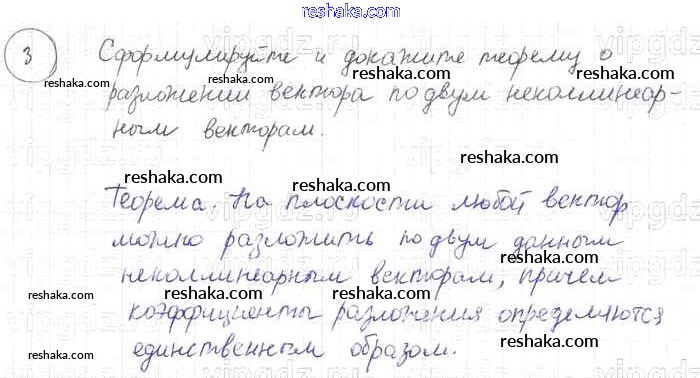 reshaka.com
3 Сформулируйте и докажите теорему о
reshaka.com reshaka.com reshaka.com
разложении вектора по двум неколлинеар-
ным векторам.
reshaka.com
reshaka.com
Теорема. На плоскости любой вектор
reshaka.com reshaka.com
можно разложить по двум данным
неколлинеарным векторам, причем
reshaka.com reshaka.com reshaka.com
коэффициенты разложения определяются
единственным образом.
reshaka.com reshaka.com reshaka.com
vipgdz.ru